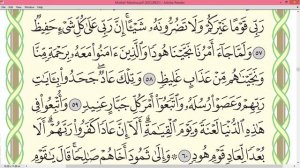 Mushaf Madinah.pdf (SECURED) - Adobe Reader
رَبِّى قَوْمًا غَيْرَكُمْ وَلَا تَضُرُّونَهُۥ شَيْـًٔا ۚ إِنَّ رَبِّى عَلَىٰ كُلِّ شَىْءٍ حَفِيظٌ
٥٧ وَلَمَّا جَآءَ أَمْرُنَا نَجَّيْنَا هُودًا وَٱلَّذِينَ ءَامَنُوا۟ مَعَهُۥ بِرَحْمَةٍ مِّنَّا
وَنَجَّيْنَٰهُم مِّنْ عَذَابٍ غَلِيظٍ ٥٨ وَتِلْكَ عَادٌ ۖ جَحَدُوا۟ بِـَٔايَٰتِ
رَبِّهِمْ وَعَصَوْا۟ رُسُلَهُۥ وَٱتَّبَعُوٓا۟ أَمْرَ كُلِّ جَبَّارٍ عَنِيدٍ ٥٩ وَأُتْبِعُوا۟ فِى
هَٰذِهِ ٱلدُّنْيَا لَعْنَةً وَيَوْمَ ٱلْقِيَٰمَةِ ۗ أَلَآ إِنَّ عَادًا كَفَرُوا۟ رَبَّهُمْ ۗ أَلَا
بُعْدًا لِّعَادٍ قَوْمِ هُودٍ ٦٠ وَإِلَىٰ ثَمُودَ أَخَاهُمْ صَٰلِحًا ۚ قَالَ يَٰقَوْمِ